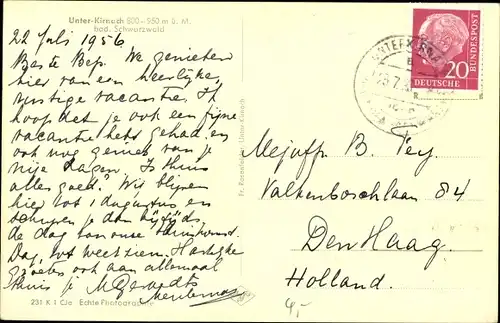 Unter-Kirnach 800-950 m ü. M.
bad. Schwarzwald
22 Juli 1956
Beste Bep. We genieten
hier van een heerlijke,
rustige vacantie. Ik
hoop dat je ook een fijne
vacantie hebt gehad, en
ook nog geniet van je
vrije dagen. Is thuis
alles goed? Wij blijven
hier tot 1 Augustus en
je dan bijtijds
de dag van onze thuiskomst.
Dag, tot weerziens. Hartelijke
groeten ook aan allemaal
thuis je M Gevaerdts
231 K 1 Cie Echte Photographie
20
DEUTSCHE
BUNDESPOST
UNTERKIRNACH
23.7.
Mejuffr. B. Pey.
Valkenboschlaan 84
Den Haag.
Holland.
4,-